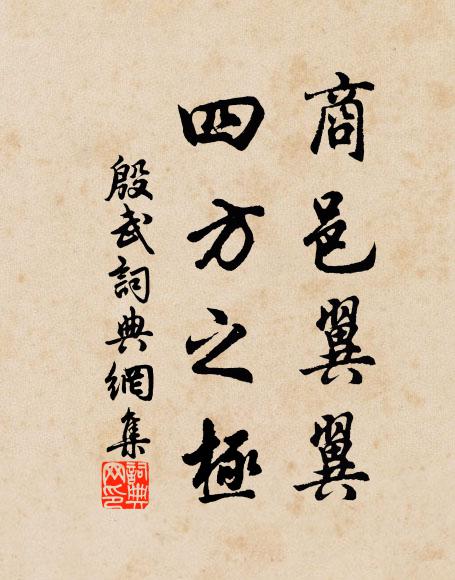 商邑翼翼
四方之極
殷武詞典網集
詞典網印